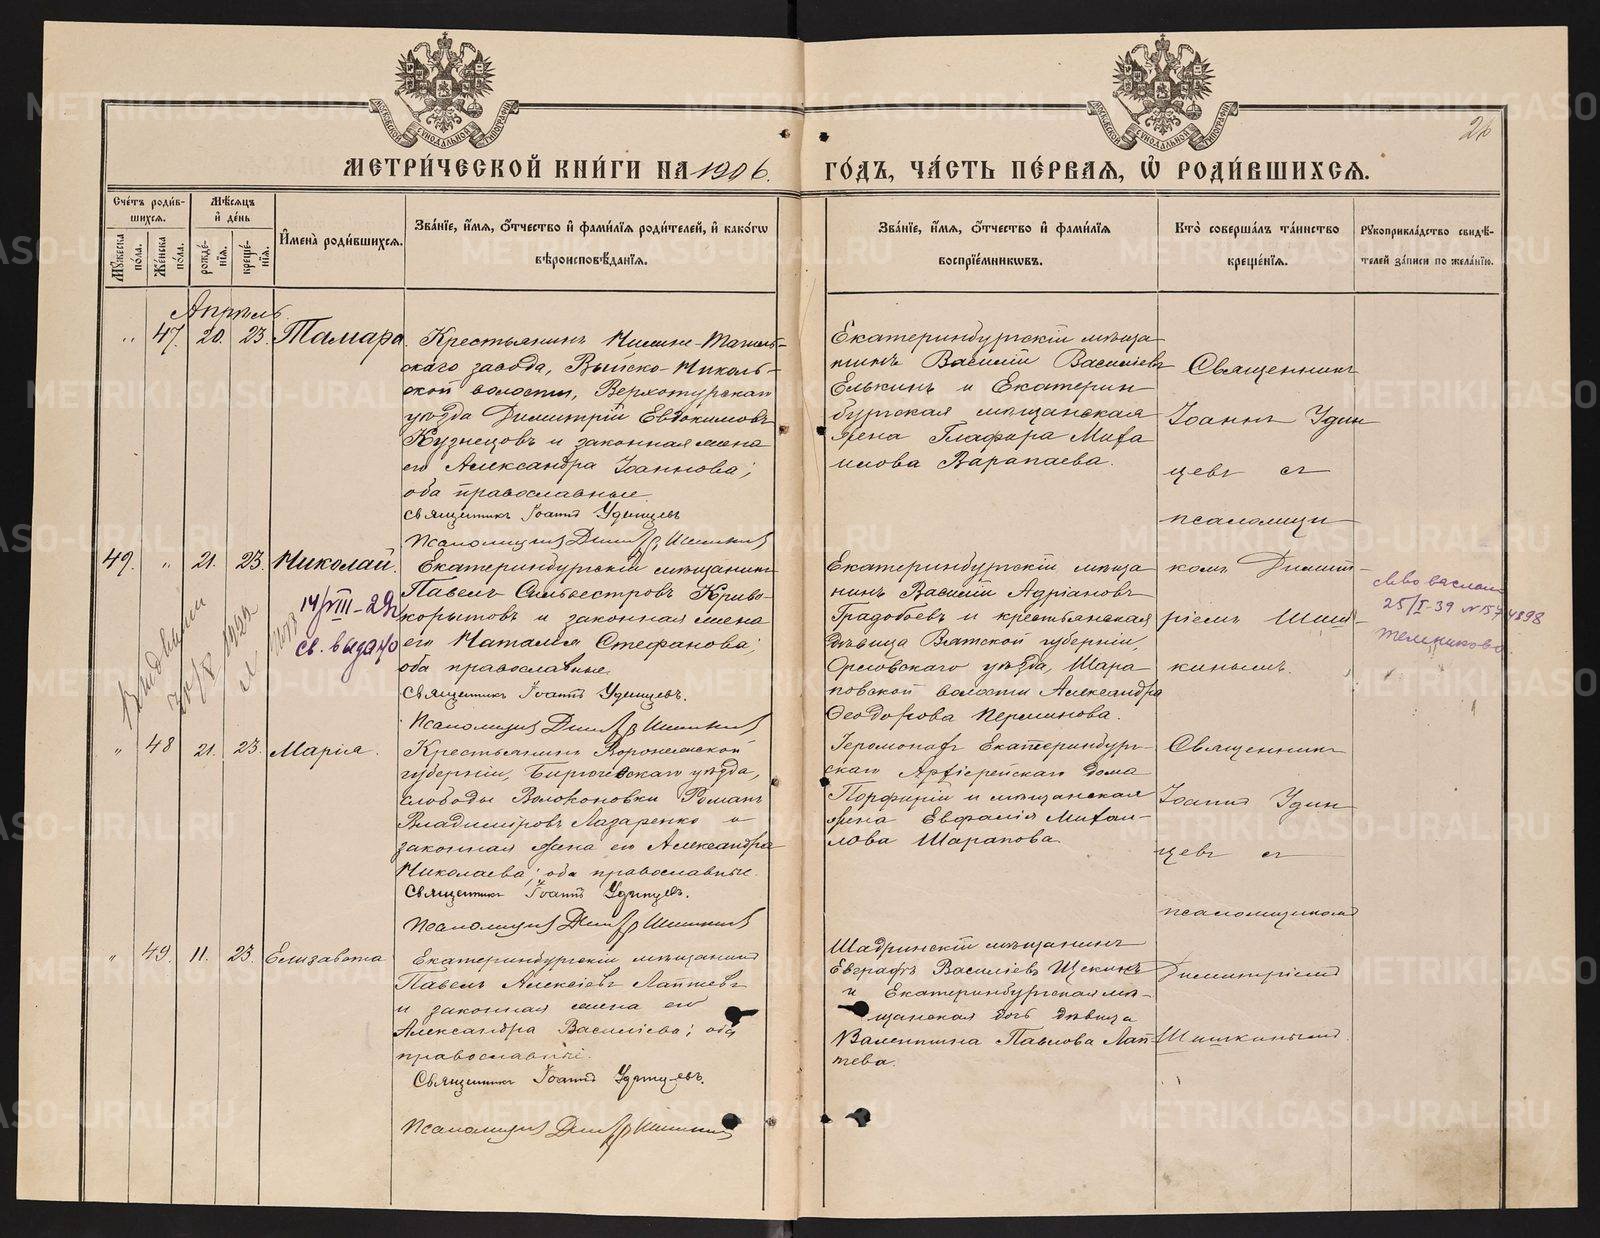 МЕТРИ́ЧЕСКОЙ КНИ́ГИ НА 1906.
ГО́ДЪ, ЧА́СТЬ ПЕ́РВАЯ, Ѡ҆ РОДИ́ВШИХСЯ.
26
Сче́тъ роди́в-
шихся.
Мꙋ́жеска по́ла.
Же́нска по́ла.
Мѣ́сяцъ
и҆ де́нь
рожде́-
нїя.
креще́-
нїя.
И҆мена̀ роди́вшихся.
Зва́нїе, и҆́мя, ѻ҆́тчество и҆ фами́лїя роди́телей, и҆ како́гѡ
вѣроисповѣ́данїя.
Зва́нїе, и҆́мя, ѻ҆́тчество и҆ фами́лїя
воспрїе́мникѡвъ.
Кто̀ соверша́лъ та́инство
креще́нїя.
Рꙋкоприкла́дство свидѣ́-
телей за́писи по жела́нїю.
Апрѣль.
" 47. 20. 23. Тамара.
Крестьянинъ Нижне-Тагиль-
скаго завода, Выйско-Николь-
ской волости, Верхотурскаго
уѣзда Димитрій Евдокимовъ
Кузнецовъ и законная жена
его Александра Іоаннова;
оба православные.
Священникъ Іоаннъ Удинцевъ
Псаломщикъ Дим. Шишкинъ
Екатеринбургскій мѣща-
нинъ Василій Васильевъ
Елькинъ и Екатерин-
бургская мѣщанская
жена Глафира Михаи-
лова Варапаева.
Священникъ
Іоаннъ Удин-
цевъ съ
псаломщи-
49. " 21. 23. Николай.
Екатеринбургскій мѣщанинъ
Павелъ Сильвестровъ Криво-
корытовъ и законная жена
его Наталія Стефанова;
оба православные.
Священникъ Іоаннъ Удинцевъ.
Псаломщикъ Дим. Шишкинъ
14/VIII-29г
св. выдано
Екатеринбургскій мѣща-
нинъ Василій Адріановъ
Градобоевъ и крестьянская
дѣвица Вятской губерніи,
Орловскаго уѣзда, Шара-
повской волости Александра
Ѳеодорова Перминова.
комъ Димит-
ріемъ Шиш-
кинымъ.
25/I-39 №
" 48 21. 23. Марія.
Крестьянинъ Воронежской
губерніи, Бирюченскаго уѣзда,
слободы Волоконовки Романъ
Владиміровъ Лазаренко и
законная жена его Александра
Николаева; оба православные.
Священникъ Іоаннъ Удинцевъ.
Псаломщикъ Дим. Шишкинъ
Іеромонахъ Екатеринбург-
скаго Архіерейскаго дома
Порфирій и мѣщанская
жена Евфалія Михаи-
лова Шарапова
Священникъ
Іоаннъ Удин-
цевъ съ
псаломщикомъ
" 49. 11. 23. Елизавета
Екатеринбургскій мѣщанинъ
Павелъ Алексѣевъ Лаптевъ
и законная жена его
Александра Васильева; оба
православные.
Священникъ Іоаннъ Удинцевъ.
Псаломщикъ Дим. Шишкинъ
Шадринскій мѣщанинъ
Евграфъ Васильевъ Щекинъ
и Екатеринбургская мѣ-
щанская дочь дѣвица
Валентина Павлова Лап-
тева.
Димитріемъ
Шишкинымъ.
METRIKI.GASO-URAL.RU